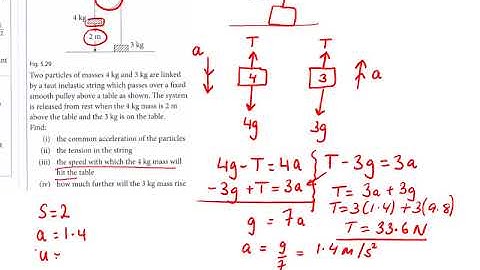 4 kg
2 m
3 kg
Fig. 5.29
Two particles of masses 4 kg and 3 kg are linked
by a taut inelastic string which passes over a fixed
smooth pulley above a table as shown. The system
is released from rest when the 4 kg mass is 2 m
above the table and the 3 kg is on the table.
Find:
(i) the common acceleration of the particles
(ii) the tension in the string
(iii) the speed with which the 4 kg mass will
hit the table
(iv) how much further will the 3 kg mass rise
S=2
a=1.4
u=
T T
a 4 3 a
4g 3g
4g-T=4a T-3g=3a
-3g+T=3a T=3a+3g
g=7a T=3(1.4)+3(9.8)
T=33.6N
a=g/7=1.4m/s²